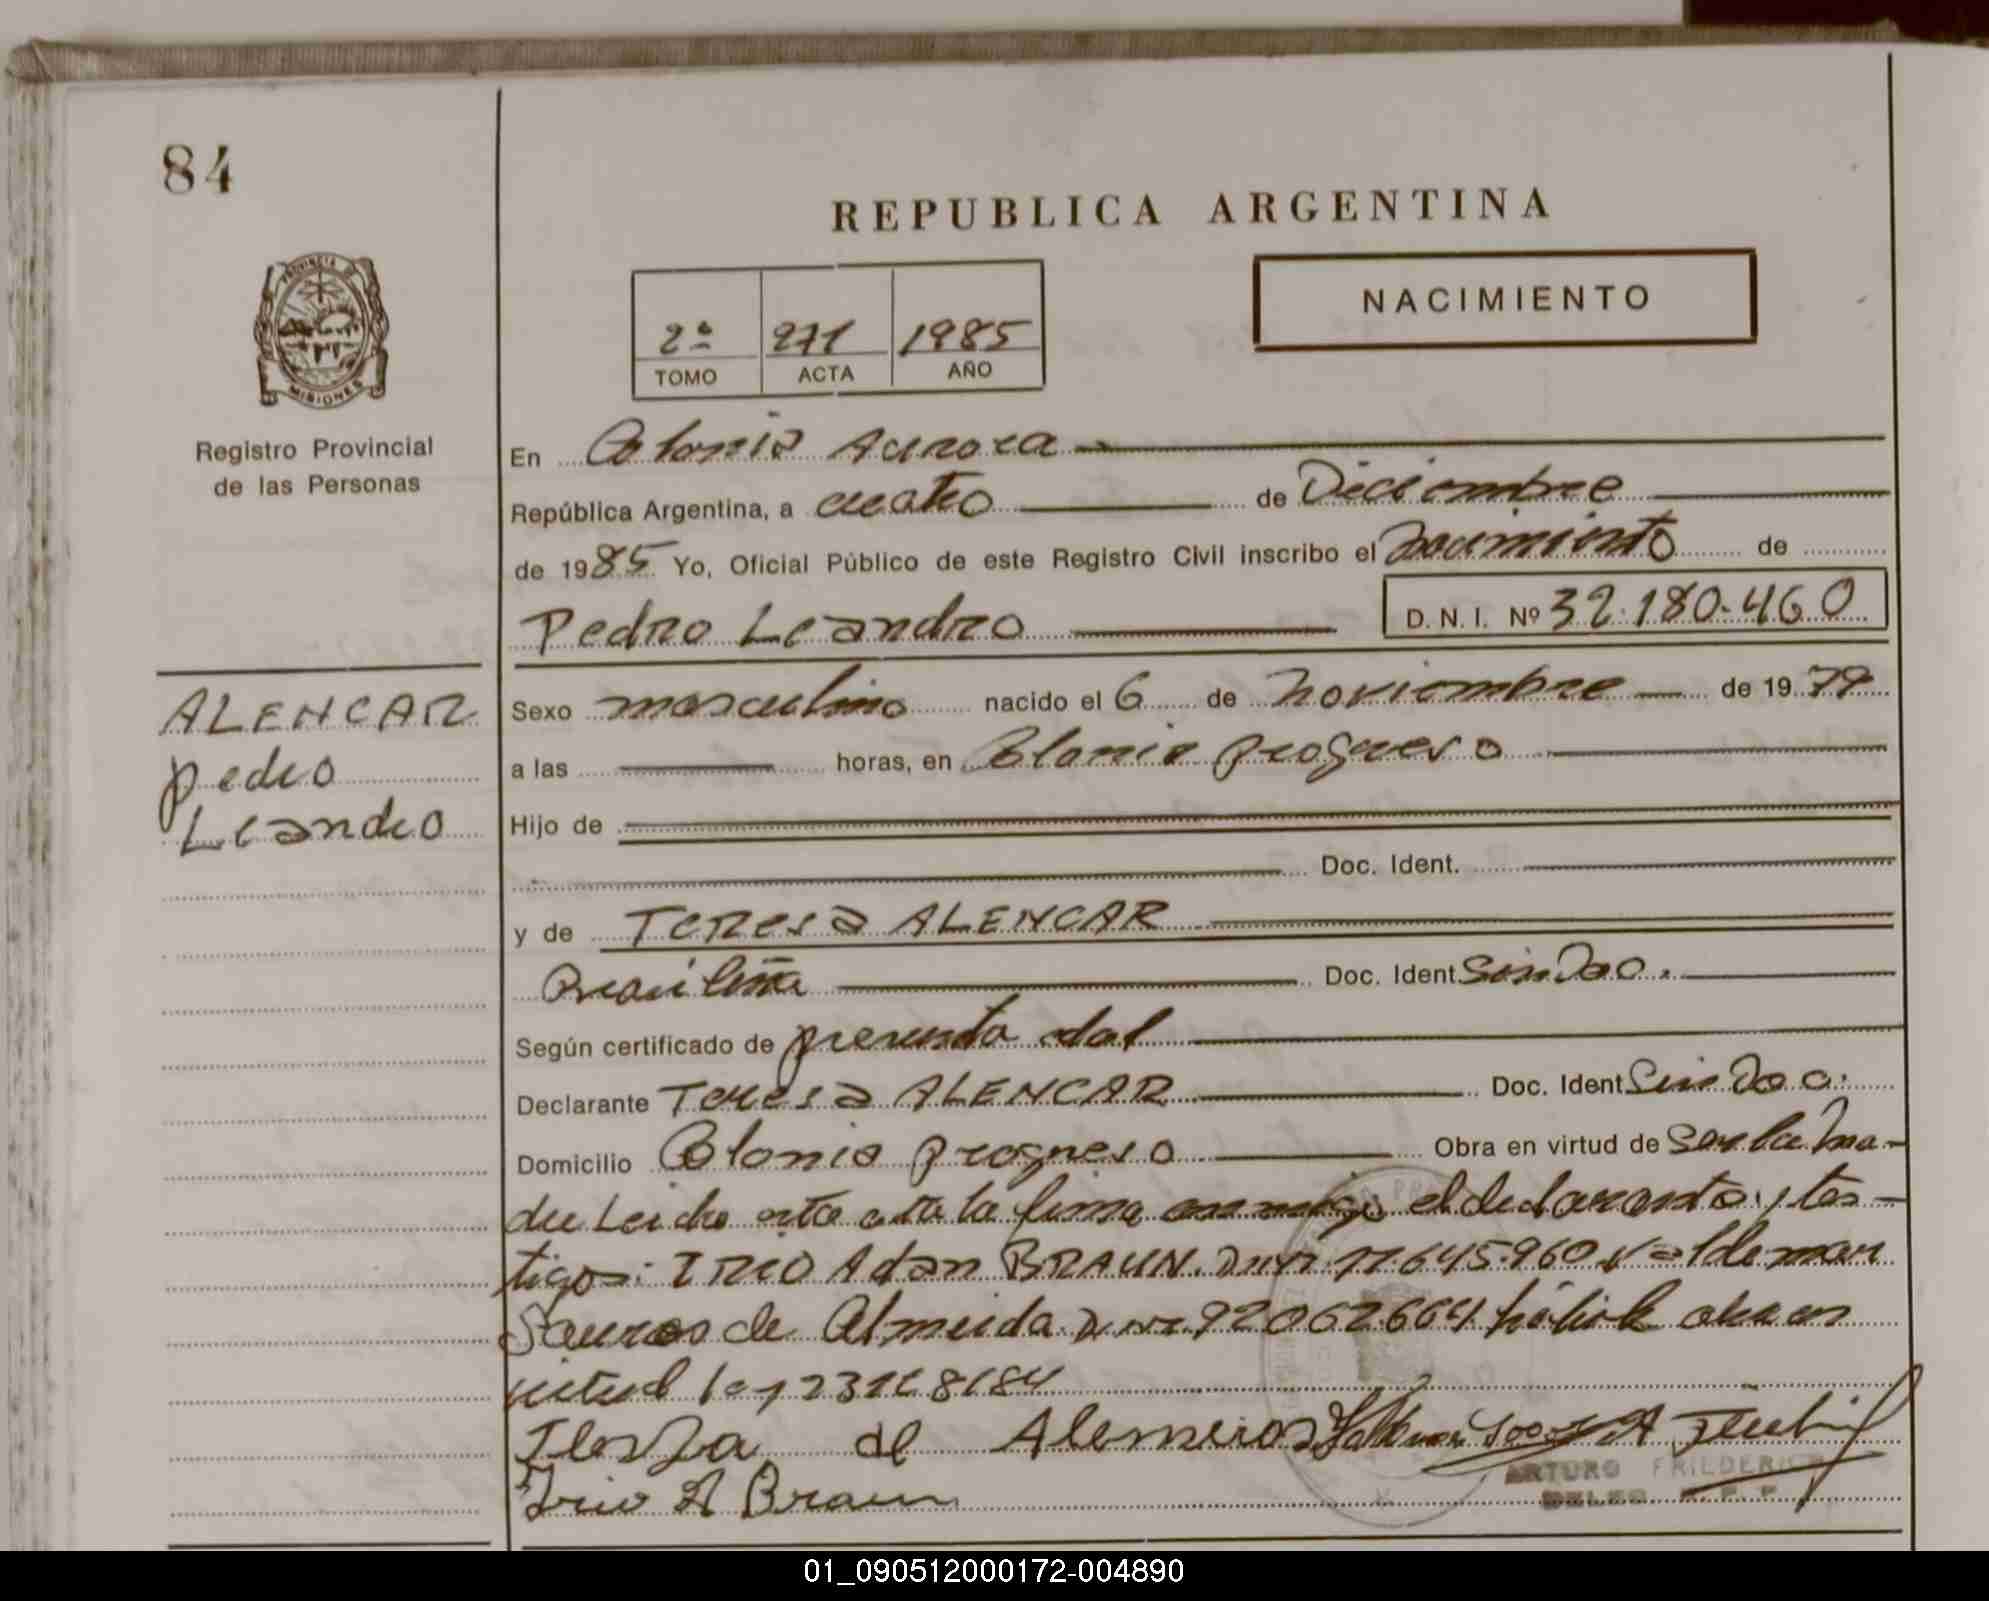 84
REPUBLICA ARGENTINA
NACIMIENTO
2º 271 1985
TOMO ACTA AÑO
PROVINCIA DE
MISIONES
Registro Provincial
de las Personas
En Colonia Aurora
República Argentina, a cuatro de Diciembre
de 1985 Yo, Oficial Público de este Registro Civil inscribo el nacimiento de
Pedro Leandro D. N. I. Nº 32.180.460
ALENCAR
Pedro
Leandro
Sexo masculino nacido el 6 de noviembre de 1979
a las horas, en Colonia progreso
Hijo de
Doc. Ident.
y de Teresa ALENCAR
Brasileña Doc. Ident Sin Doc.
Según certificado de presunta edad
Declarante Teresa ALENCAR Doc. Ident Sin Doc.
Domicilio Colonia progreso Obra en virtud de ser la ma-
dre Leida esta acta la firma conmigo el declarante y tes-
tigos: IRIO Adan BRAUN. 17.645.960 Valdemar
Soares de Almeida 92062664
virtud ley 23168/84
de
Irio A Braun
ARTURO
01_090512000172-004890